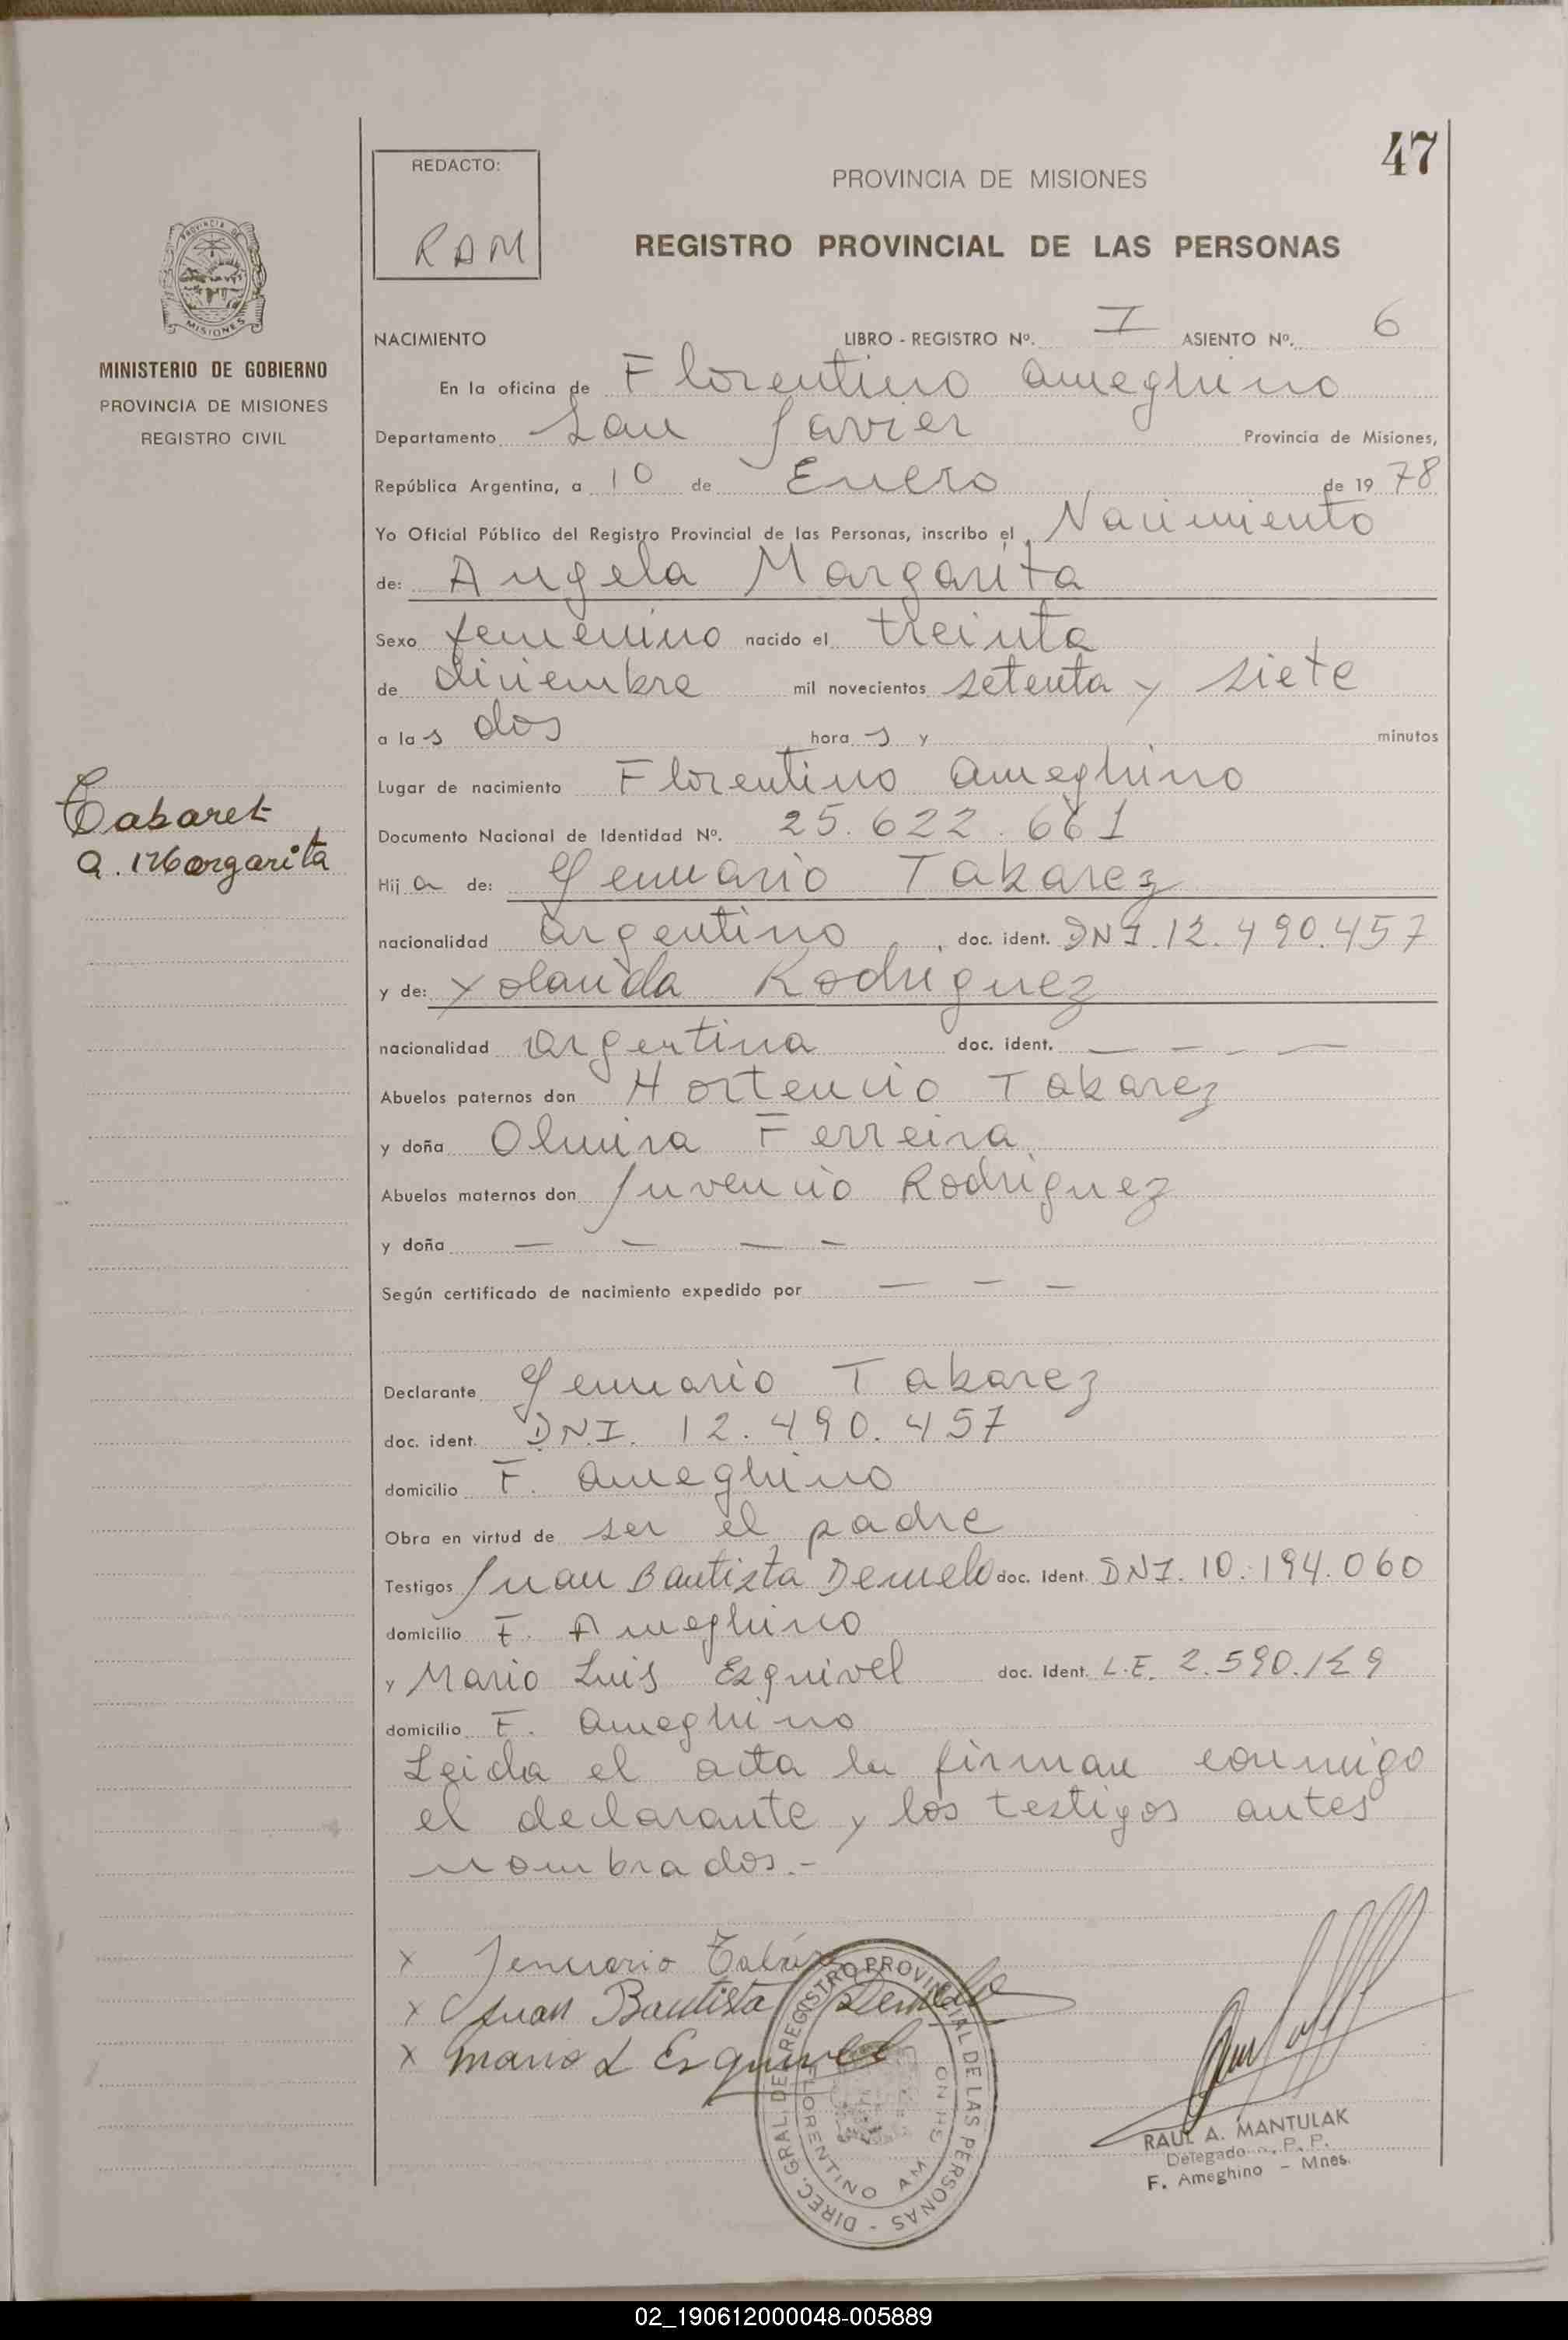 47
REDACTO:
RAM
PROVINCIA DE MISIONES
REGISTRO PROVINCIAL DE LAS PERSONAS
PROVINCIA DE
MISIONES
MINISTERIO DE GOBIERNO
PROVINCIA DE MISIONES
REGISTRO CIVIL
NACIMIENTO LIBRO - REGISTRO Nº. I ASIENTO Nº. 6
En la oficina de Florentino Ameghino
Departamento San Javier Provincia de Misiones,
República Argentina, a 10 de Enero de 1978
Yo Oficial Público del Registro Provincial de las Personas, inscribo el Nacimiento
de: Angela Margarita
Sexo femenino nacido el treinta
de diciembre mil novecientos setenta y siete
a las dos horas y minutos
Lugar de nacimiento Florentino Ameghino
Tabaret
A. Margarita
Documento Nacional de Identidad Nº. 25.622.661
Hija de: Genuario Tabarez
nacionalidad argentino, doc. ident. DNI. 12.490.457
y de: Yolanda Rodriguez
nacionalidad argentina doc. ident. — — — —
Abuelos paternos don Hortencio Tabarez
y doña Olmira Ferreira
Abuelos maternos don Juvencio Rodriguez
y doña — — — —
Según certificado de nacimiento expedido por — — —
Declarante Genuario Tabarez
doc. ident. D.N.I. 12.490.457
domicilio F. Ameghino
Obra en virtud de ser el padre
Testigos Juan Bautista Demelo doc. Ident. DNI. 10.194.060
domicilio F. Ameghino
y Mario Luis Esquivel doc. Ident. L.E. 2.590.
domicilio F. Ameghino
Leida el acta la firman conmigo
el declarante y los testigos antes
nombrados.-
x Jenuario
x Juan Bautista Demello
x Mario L Esquivel
DIREC. GRAL. DEL REGISTRO PROVINCIAL DE LAS PERSONAS -
FLORENTINO AMEGHINO
RAUL A. MANTULAK
Delegado R. P. P.
F. Ameghino - Mnes.
02_190612000048-005889